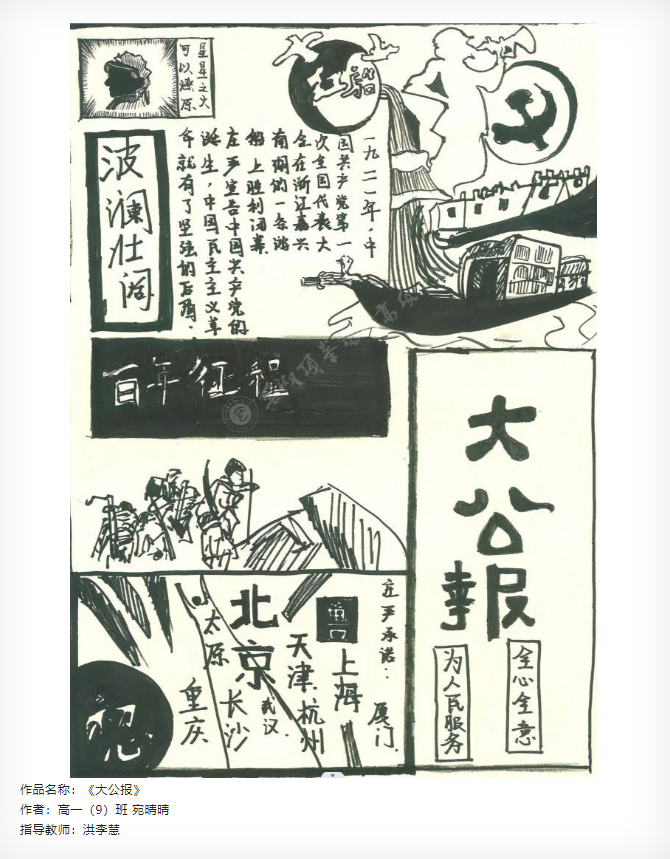 星星之火
可以燎原
一九二一年,中
国共产党第一
次全国代表大
会在浙江嘉兴
南湖的一条游
船上胜利闭幕.
庄严宣告中国共产党的
诞生,中国民主主义革
命就有了坚强的后盾.
波澜壮阔
百年征程
大公報
全心全意
为人民服务
庄严承诺:
厦门
上海
杭州
天津
武汉
北京
长沙
太原
重庆
作品名称：《大公报》
作者：高一（9）班 宛晴晴
指导教师：洪李慧